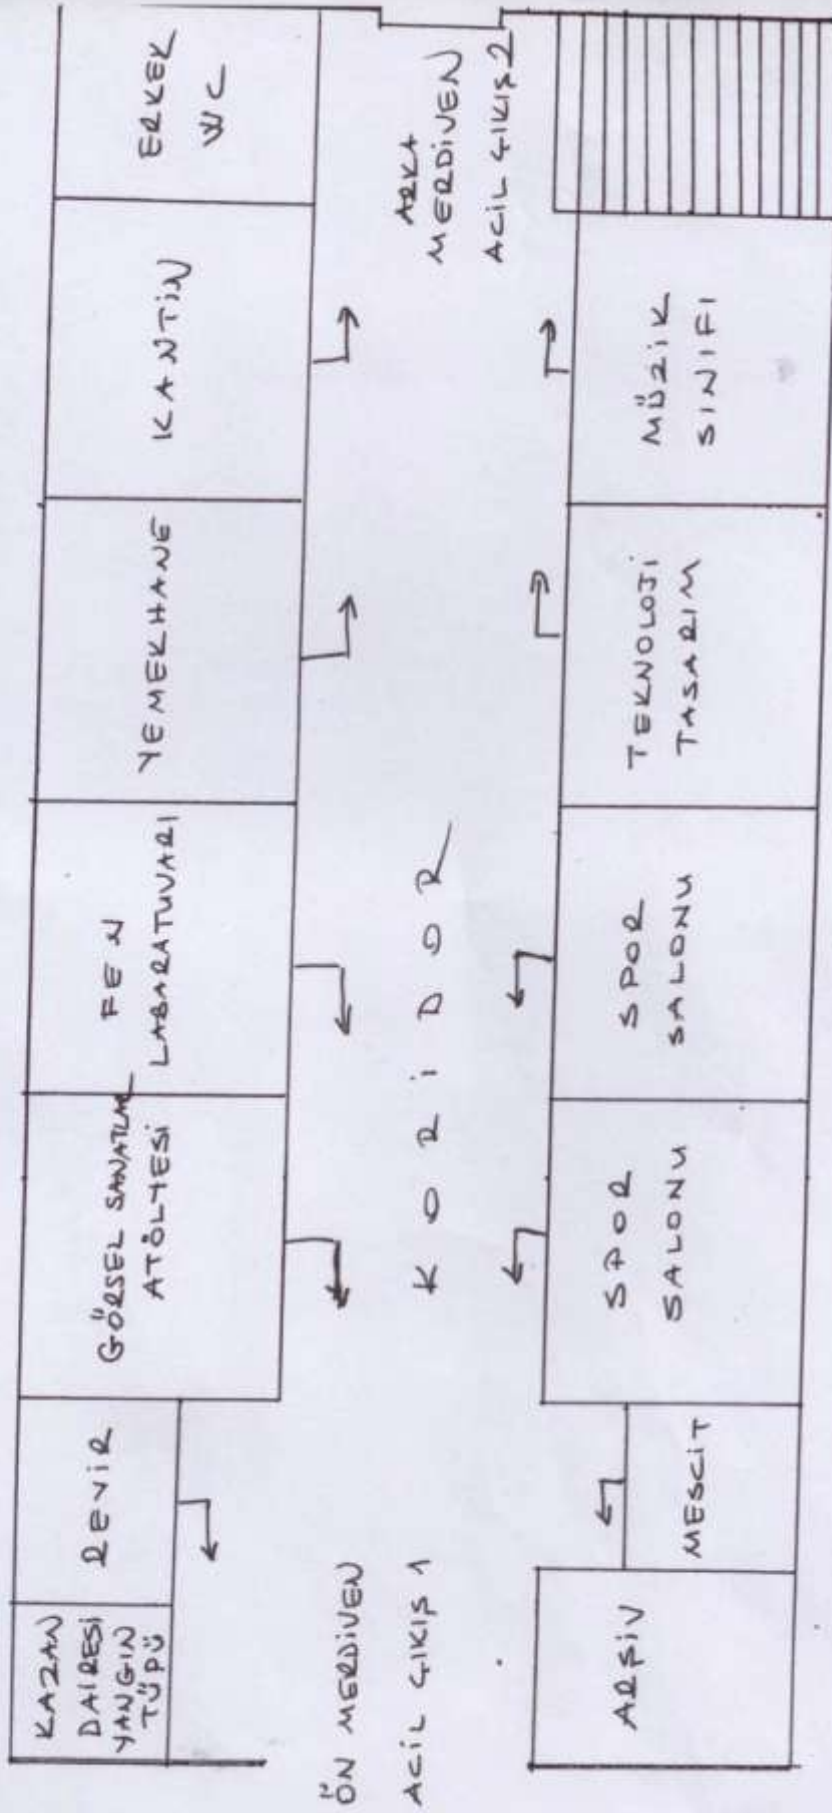 KAZAN
DAİRESİ
YANGIN
TÜPÜ
REVİR
GÖRSEL SANATLAR
ATÖLYESİ
FEN
LABARATUVARI
YEMEKHANE
KANTİN
ERKEK
WC
ÖN MERDİVEN
ACİL ÇIKIŞ 1
KORİDOR
ARKA
MERDİVEN
ACİL ÇIKIŞ 2
ARŞİV
MESCİT
SPOR
SALONU
SPOR
SALONU
TEKNOLOJİ
TASARIM
MÜZİK
SINIFI